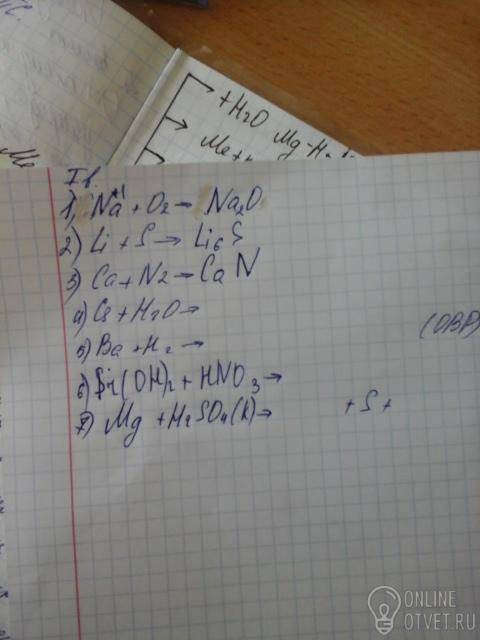 +H2O Mg-
Me
I в.
1) Na + O2 → Na2O
2) Li + S → Li6S
3) Ca + N2 → CaN
4) Cs + H2O →
5) Ba + H2 →
(ОВР)
6) Sr(OH)2 + HNO3 →
7) Mg + H2SO4(k) → + S +
ONLINE
OTVET.RU